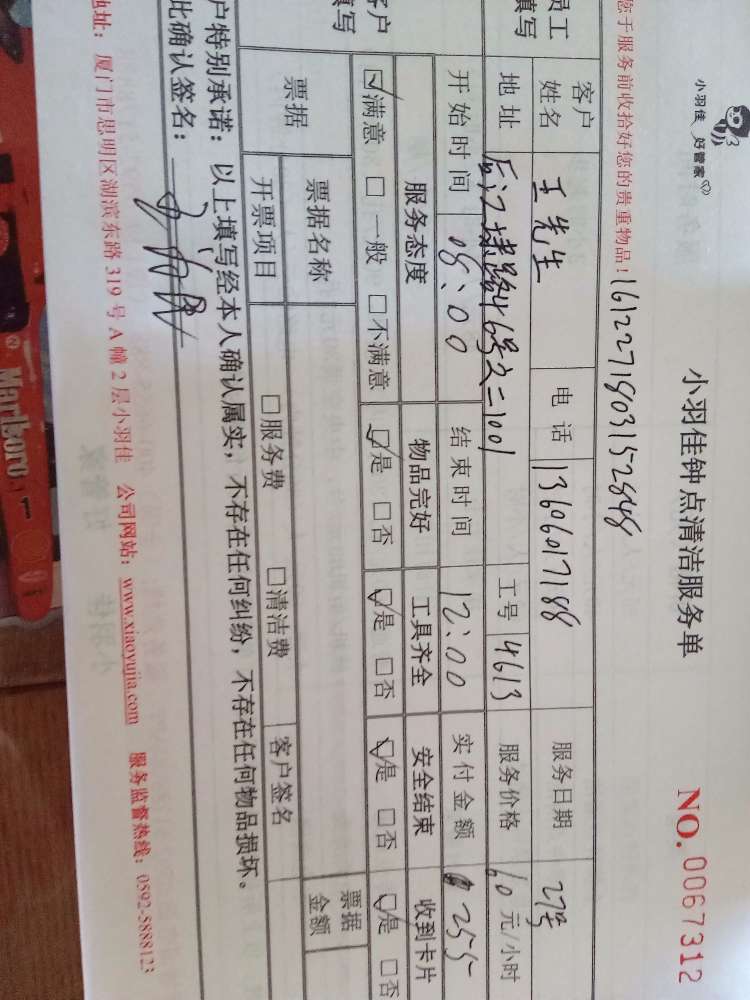 小羽佳 好管家
小羽佳钟点清洁服务单
NO.0067312
您于服务前收拾好您的贵重物品!
1612271803152848
员工填写
客户姓名 王先生 电话 13606017188 服务日期 27号
地址 后江埭路46号之二1001 工号 4613 服务价格 60元/小时
开始时间 08:00 结束时间 12:00 实付金额 255
客户填写
服务态度 物品完好 工具齐全 安全结束 收到卡片
☑满意 □一般 □不满意 ☑是 □否 ☑是 □否 ☑是 □否 ☑是 □否
票据 票据名称 票据金额
开票项目 □服务费 □清洁费 客户签名
户特别承诺:以上填写经本人确认属实,不存在任何纠纷,不存在任何物品损坏。
此确认签名:
地址:厦门市思明区湖滨东路 319 号 A 幢 2 层小羽佳 公司网站:www.xiaoyujia.com 服务监督热线:0592-5888123
Marlboro